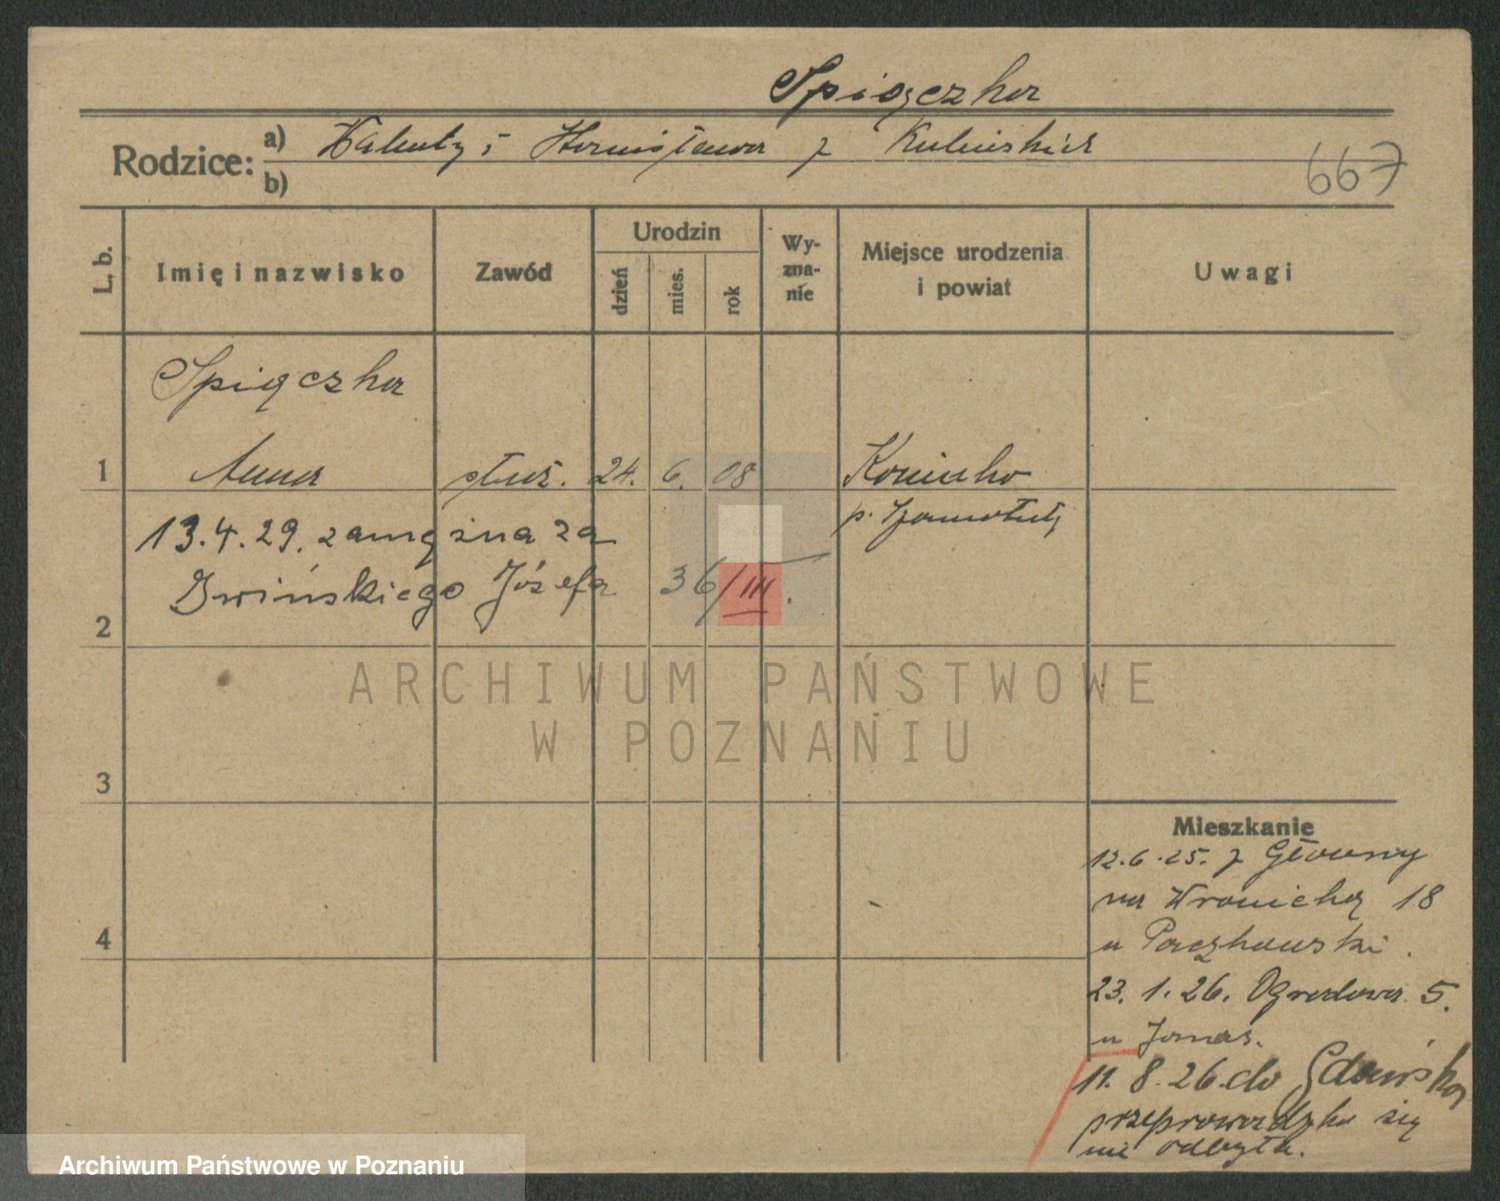 Spiączka
Rodzice: a) Walenty i Stanisława z Kubińskich
b)
667
L. b.
Imię i nazwisko
Zawód
Urodzin
dzień
mies.
rok
Wy-
zna-
nie
Miejsce urodzenia
i powiat
Uwagi
Spiączka
1 Anna służ. 24. 6. 08
p. Szamotuły
13.4.29. zamężna za
2 Iwińskiego Józefa 36/III.
3
4
Mieszkanie
12.6.25. z Główny
na Wroniecką 18
u Paczkowski.
23. 1. 26. Ogrodowa 5.
u Jonas.
11. 8. 26 do Gdańska
przeprowadzka się
nie odbyła.
ARCHIWUM PAŃSTWOWE
W POZNANIU
Archiwum Państwowe w Poznaniu